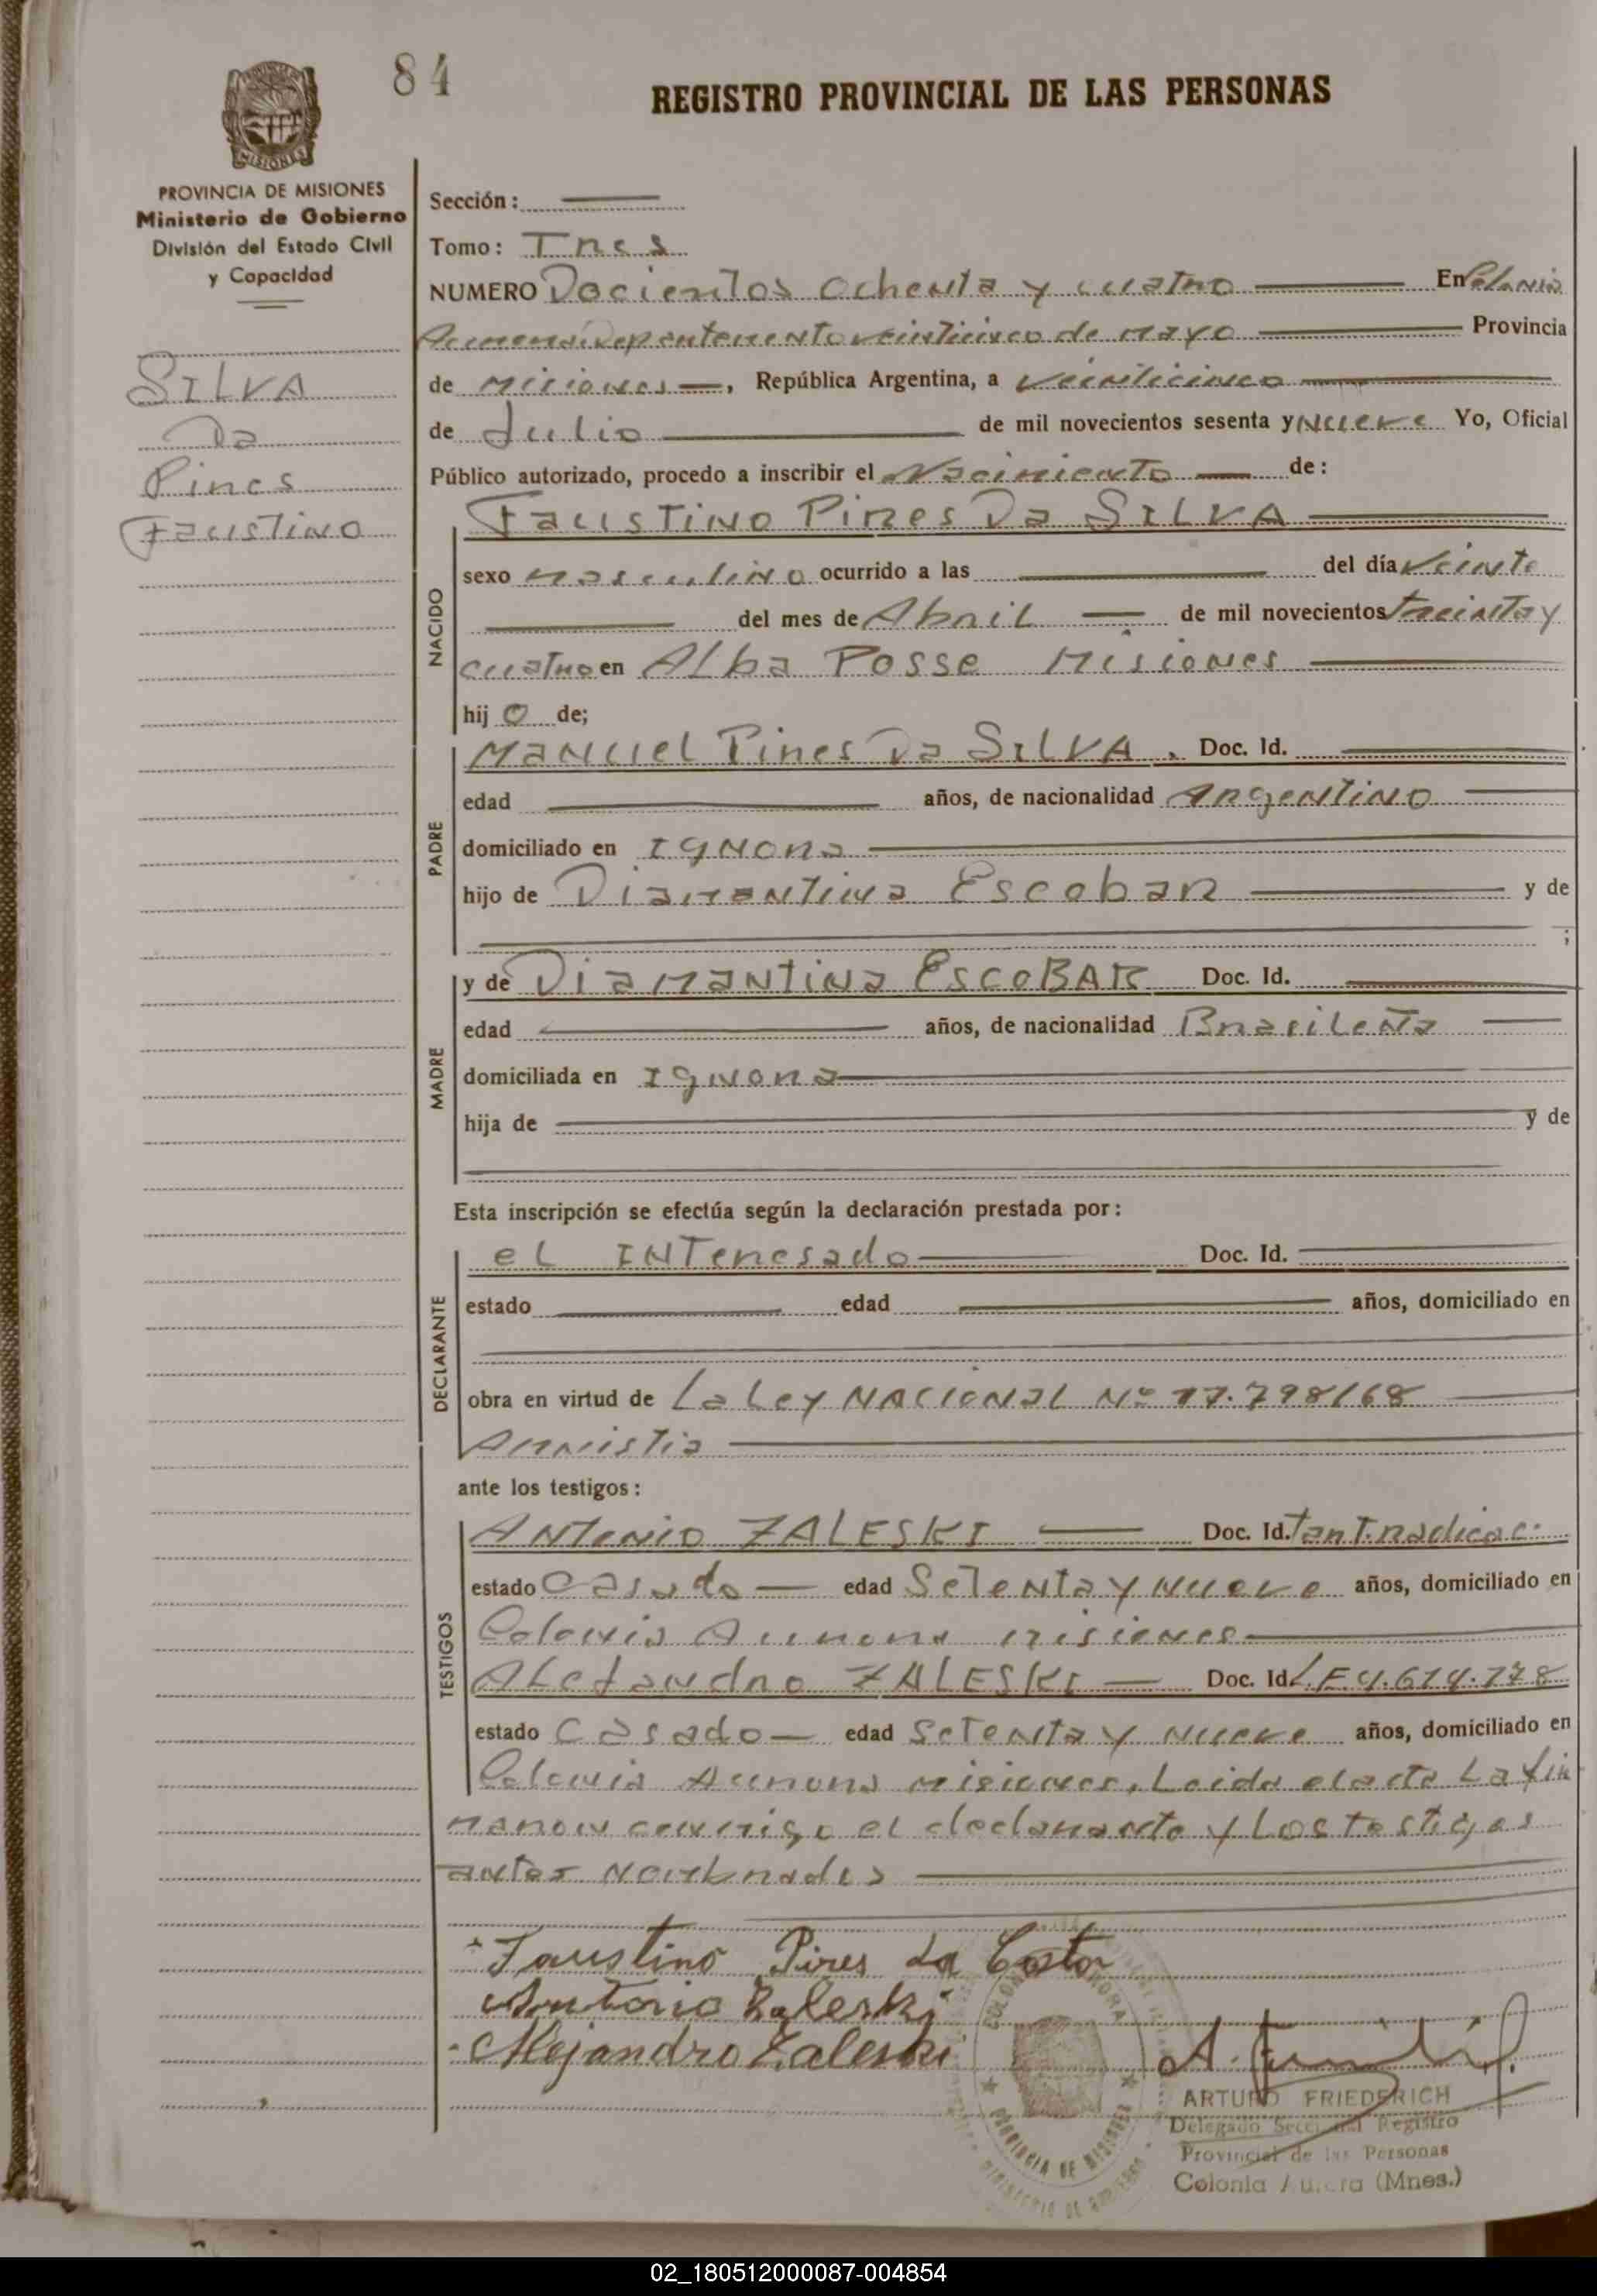 84
REGISTRO PROVINCIAL DE LAS PERSONAS
PROVINCIA DE MISIONES
Ministerio de Gobierno
División del Estado Civil
y Capacidad
SILVA
Da
Pires
Faustino
Sección:
Tomo: Tres
NUMERO Docientos ochenta y cuatro En Colonia
Aurora Departemento veinticinco de mayo Provincia
de Misiones, República Argentina, a veinticinco
de Julio de mil novecientos sesenta y Nueve Yo, Oficial
Público autorizado, procedo a inscribir el Nacimiento de:
NACIDO
Faustino Pires Da SILVA
sexo masculino ocurrido a las del día veinte
del mes de Abril de mil novecientos treinta y
cuatro en Alba Posse Misiones
hij o de;
PADRE
Manuel Pires Da SILVA. Doc. Id.
edad años, de nacionalidad Argentino
domiciliado en Ignora
hijo de Diamantina Escobar y de
;
MADRE
y de Diamantina EscoBAR Doc. Id.
edad años, de nacionalidad Brasileña
domiciliada en Ignora
hija de y de
Esta inscripción se efectúa según la declaración prestada por:
DECLARANTE
el INTeresado Doc. Id.
estado edad años, domiciliado en
obra en virtud de La Ley NACIONAL Nº 17.798/68
Amnistia
ante los testigos:
TESTIGOS
Antonio ZALESKI Doc. Id. Tar T. radicac.
estado Casado edad Setenta y nueve años, domiciliado en
Colonia Aurora misiones
Alejandro ZALESKI Doc. Id. L.E 4.614.178
estado Casado edad Setenta y nueve años, domiciliado en
Colonia Aurora misiones, Leida el acta La fir
maron conmigo el declarante y Los testigos
antes nombrados
Faustino Pires da Costa
Antonio Zaleski
Alejandro Zaleski
COLONIA AURORA
PROVINCIA DE MISIONES
MINISTERIO DE GOBIERNO
ARTURO FRIEDERICH
Delegado Seccional Registro
Provincial de las Personas
Colonia Aurora (Mnes.)
02_180512000087-004854